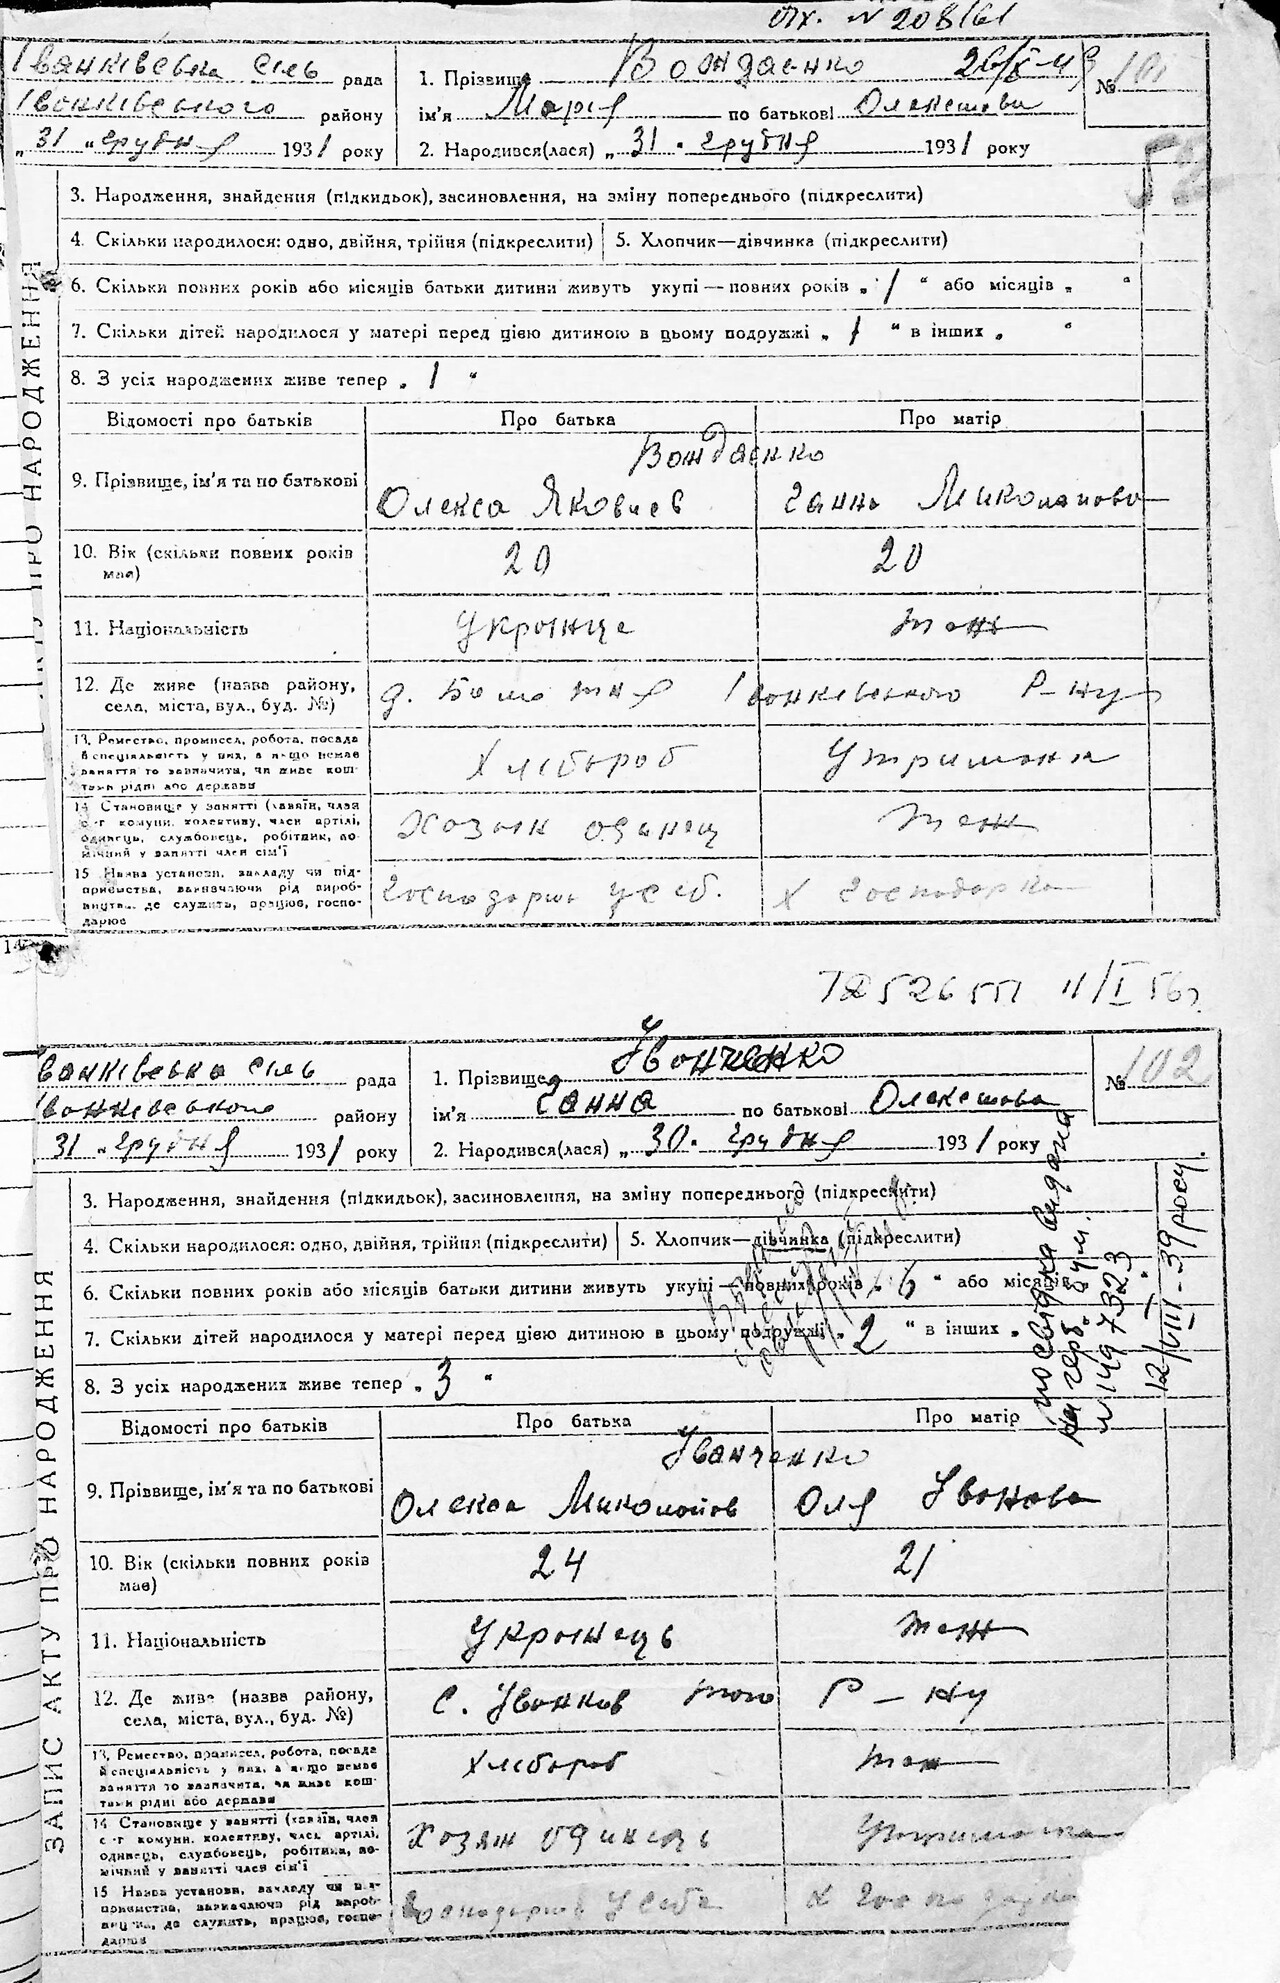 вх. № 208/61
Іванківська сіль рада
Іванківського району
„ 31 " грудня 1931 року
1. Прізвище Бондаєнко
№ 101
ім'я Марія по батькові Олексієва
2. Народився(лася) „ 31 " грудня 1931 року
52
ЗАПИС АКТУ ПРО НАРОДЖЕННЯ
3. Народження, знайдення (підкидьок), засиновлення, на зміну попереднього (підкреслити)
4. Скільки народилося: одно, двійня, трійня (підкреслити) 5. Хлопчик—дівчинка (підкреслити)
6. Скільки повних років або місяців батьки дитини живуть укупі — повних років „ 1 " або місяців „ "
7. Скільки дітей народилося у матері перед цією дитиною в цьому подружжі „ 1 " в інших „ "
8. З усіх народжених живе тепер „ 1 "
Відомості про батьків Про батька Про матір
9. Прізвище, ім'я та по батькові
Олекса Яковлев Ганна Миколаївна
10. Вік (скільки повних років має) 20 20
11. Національність Українце теж
12. Де живе (назва району, села, міста, вул., буд. №) Іванківського р-ну
13. Ремество, промисел, робота, посада й спеціальність у них, а якщо немає заняття то зазначити, чи живе коштами рідні або держави Хлібороб Утриманка
14 Становище у занятті (хазяїн, член с-г комуни, колективу, член артілі, одинець, службовець, робітник, помічний у занятті член сім'ї Хозяїн одинец теж
15 Назва установи, закладу чи підприємства, зазначаючи рід виробництва, де служить, працює, господарює Господарює у себ. х господарка
11/I 56 г.
Іванківська сіль рада
Іванківського району
31 " грудня 1931 року
1. Прізвище Іванченко
№ 102
ім'я Ганна по батькові Олексієва
2. Народився(лася) „ 30 " грудня 1931 року
ЗАПИС АКТУ ПРО НАРОДЖЕННЯ
3. Народження, знайдення (підкидьок), засиновлення, на зміну попереднього (підкреслити)
4. Скільки народилося: одно, двійня, трійня (підкреслити) 5. Хлопчик—дівчинка (підкреслити)
6. Скільки повних років або місяців батьки дитини живуть укупі — повних років „ 6 " або місяців
7. Скільки дітей народилося у матері перед цією дитиною в цьому подружжі „ 2 " в інших „
8. З усіх народжених живе тепер „ 3 "
посвідка видана
на герб. бум.
№ 1497323
12/VIII-39 року.
Відомості про батьків Про батька Про матір
Іванченко
9. Прізвище, ім'я та по батькові Олекса Миколайов Оля Іванова
10. Вік (скільки повних років має) 24 21
11. Національність Українець теж
12. Де живе (назва району, села, міста, вул., буд. №) с. Іванков того р-ну
13. Ремество, промисел, робота, посада й спеціальність у них, а якщо немає заняття то зазначити, чи живе коштами рідні або держави Хлібороб теж
14 Становище у занятті (хазяїн, член с-г комуни, колективу, член артілі, одинець, службовець, робітник, помічний у занятті член сім'ї Хозяїн одинець Утриманка
15 Назва установи, закладу чи підприємства, зазначаючи рід виробництва, де служить, працює, господарює Господарює у себе х господарка